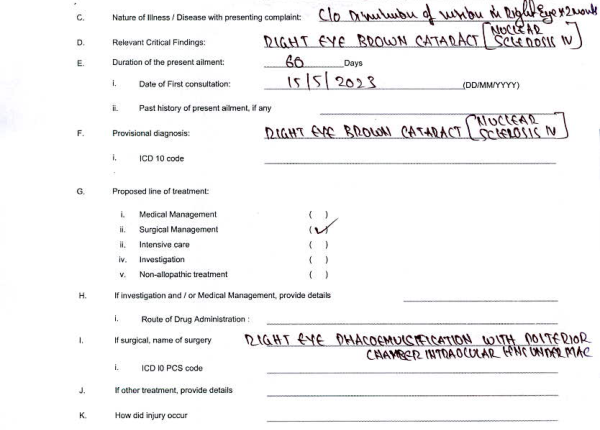 C. Nature of Illness / Disease with presenting complaint: C/o Diminution of vision in Right Eye x 2 months
D. Relevant Critical Findings: RIGHT EYE BROWN CATARACT [NUCLEAR SCLEROSIS IV]
E. Duration of the present ailment: 60 Days
i. Date of First consultation: 15/5/2023 (DD/MM/YYYY)
ii. Past history of present ailment, if any
F. Provisional diagnosis: RIGHT EYE BROWN CATARACT [NUCLEAR SCLEROSIS IV]
i. ICD 10 code
G. Proposed line of treatment:
i. Medical Management ( )
ii. Surgical Management (✓)
ii. Intensive care ( )
iv. Investigation ( )
v. Non-allopathic treatment ( )
H. If investigation and / or Medical Management, provide details
i. Route of Drug Administration :
I. If surgical, name of surgery RIGHT EYE PHACOEMULSIFICATION WITH POSTERIOR
CHAMBER INTRAOCULAR LENS UNDER MAC
i. ICD I0 PCS code
J. If other treatment, provide details
K. How did injury occur